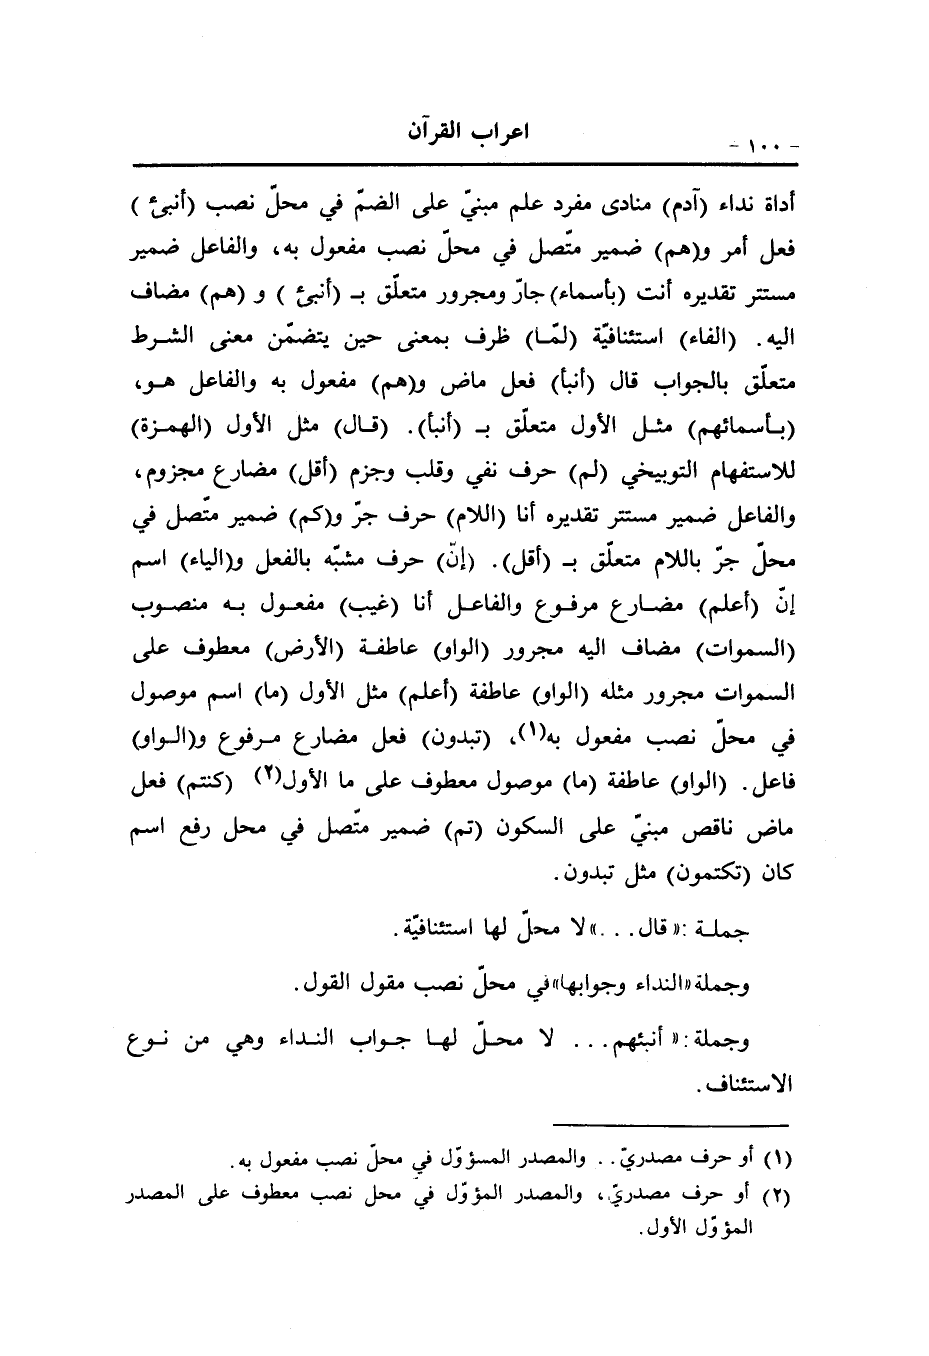 اعراب القرآن
- ١٠٠ -
أداة نداء (آدم) منادى مفرد علم مبنيّ على الضمّ في محلّ نصب (أنبئ )
فعل أمر و(هم) ضمير متّصل في محلّ نصب مفعول به، والفاعل ضمير
مستتر تقديره أنت (بأسماء) جارّ ومجرور متعلّق بـ (أنبئ ) و (هم) مضاف
اليه. (الفاء) استئنافيّة (لمّا) ظرف بمعنى حين يتضمّن معنى الشرط
متعلّق بالجواب قال (أنبأ) فعل ماض و(هم) مفعول به والفاعل هو،
(بأسمائهم) مثل الأول متعلّق بـ (أنبأ). (قال) مثل الأول (الهمزة)
للاستفهام التوبيخي (لم) حرف نفي وقلب وجزم (أقل) مضارع مجزوم،
والفاعل ضمير مستتر تقديره أنا (اللام) حرف جرّ و(كم) ضمير متّصل في
محلّ جرّ باللام متعلّق بـ (أقل). (إنّ) حرف مشبّه بالفعل و(الياء) اسم
إنّ (أعلم) مضارع مرفوع والفاعل أنا (غيب) مفعول به منصوب
(السموات) مضاف اليه مجرور (الواو) عاطفة (الأرض) معطوف على
السموات مجرور مثله (الواو) عاطفة (أعلم) مثل الأول (ما) اسم موصول
في محلّ نصب مفعول به(١)، (تبدون) فعل مضارع مرفوع و(الواو)
فاعل. (الواو) عاطفة (ما) موصول معطوف على ما الأول(٢) (كنتم) فعل
ماض ناقص مبنيّ على السكون (تم) ضمير متّصل في محل رفع اسم
كان (تكتمون) مثل تبدون.
جملة :«قال. . .» لا محلّ لها استئنافيّة.
وجملة «النداء وجوابها» في محلّ نصب مقول القول.
وجملة :« أنبئهم. . . لا محلّ لها جواب النداء وهي من نوع
الاستئناف.
(١) أو حرف مصدريّ. . والمصدر المؤوّل في محلّ نصب مفعول به.
(٢) أو حرف مصدريّ، والمصدر المؤوّل في محل نصب معطوف على المصدر
المؤوّل الأول.